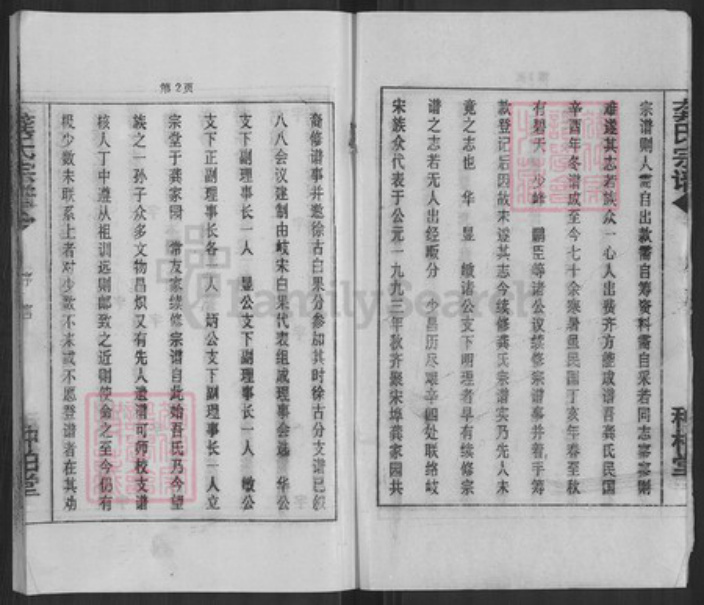 龚氏宗谱
宗谱则人需自出款需自筹资料需自采若同志寥寥则
难遂其志若族众一心人出赀齐方能成谱吾龚氏民国
辛酉年冬谱成至今七十余寒暑虽民国丁亥年春至秋
有碧天 少峰 鹏臣等诸公议续修宗谱事并着手筹
款登记后因故未遂其志今续修龚氏宗谱实乃先人未
竟之志也 华 昱 缴诸公支下明理者早有续修宗
谱之志若无人出经顺分 少昌历尽艰辛四处联络岐
宋族众代表于公元一九九三年秋齐聚宋埠龚家园共
第2页
商修谱事并邀徐古白果分参加其时徐古分支谱已叙
八八会议建制由岐宋白果代表组成理事会选 华公
支下副理事长一人 昱公支下副理事长一人 缴公
支下正副理事长各一人 炳公支下副理事长一人立
宗堂于龚家园 常友家续修宗谱自此始吾氏乃今望
族之一孙子众多文物昌炽又有先人遗谱可师校支谱
核人丁中遵从祖训远则邮致之近则使命之至今仍有
极少数未联系上者对少数不来或不愿登谱者在其劝
FamilySearch